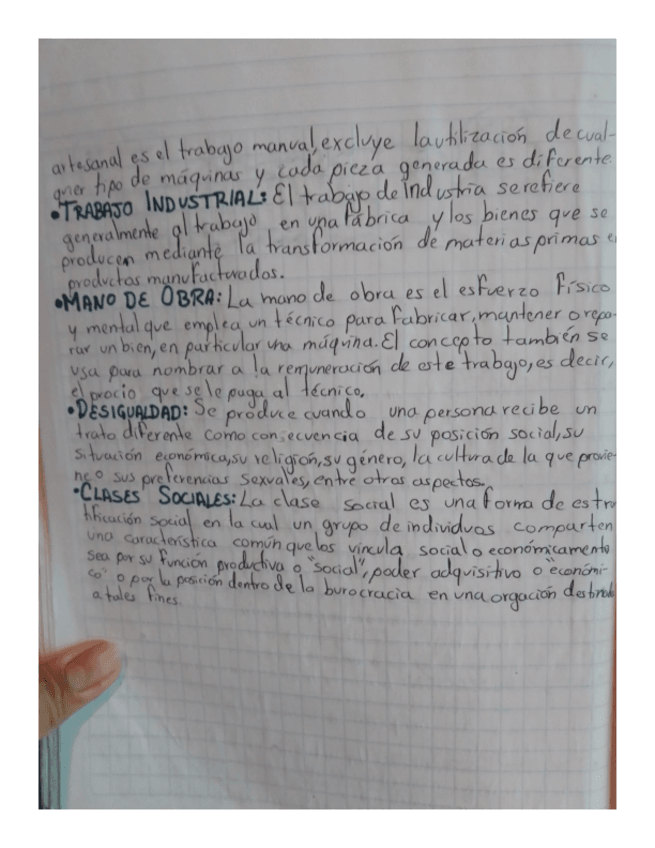 artesanal es el trabajo manual, excluye la utilización de cual-
quier tipo de máquinas y cada pieza generada es diferente
•TRABAJO INDUSTRIAL: El trabajo de Industria se refiere
generalmente al trabajo en una fábrica y los bienes que se
producen mediante la transformación de materias primas e
productos manufacturados.
•MANO DE OBRA: La mano de obra es el esfuerzo físico
y mental que emplea un técnico para fabricar, mantener o repa-
rar un bien, en particular una máquina. El concepto también se
usa para nombrar a la remuneración de este trabajo, es decir,
el precio que se le paga al técnico.
•DESIGUALDAD: Se produce cuando una persona recibe un
trato diferente como consecuencia de su posición social, su
situación económica, su religión, su género, la cultura de la que provie-
ne o sus preferencias sexuales, entre otros aspectos.
•CLASES SOCIALES: La clase social es una forma de estra
tificación social en la cual un grupo de individuos comparten
una característica común que los vincula social o económicamente
sea por su función productiva o "social", poder adquisitivo o "económi-
co" o por la posición dentro de la burocracia en una orgación destinada
a tales fines.